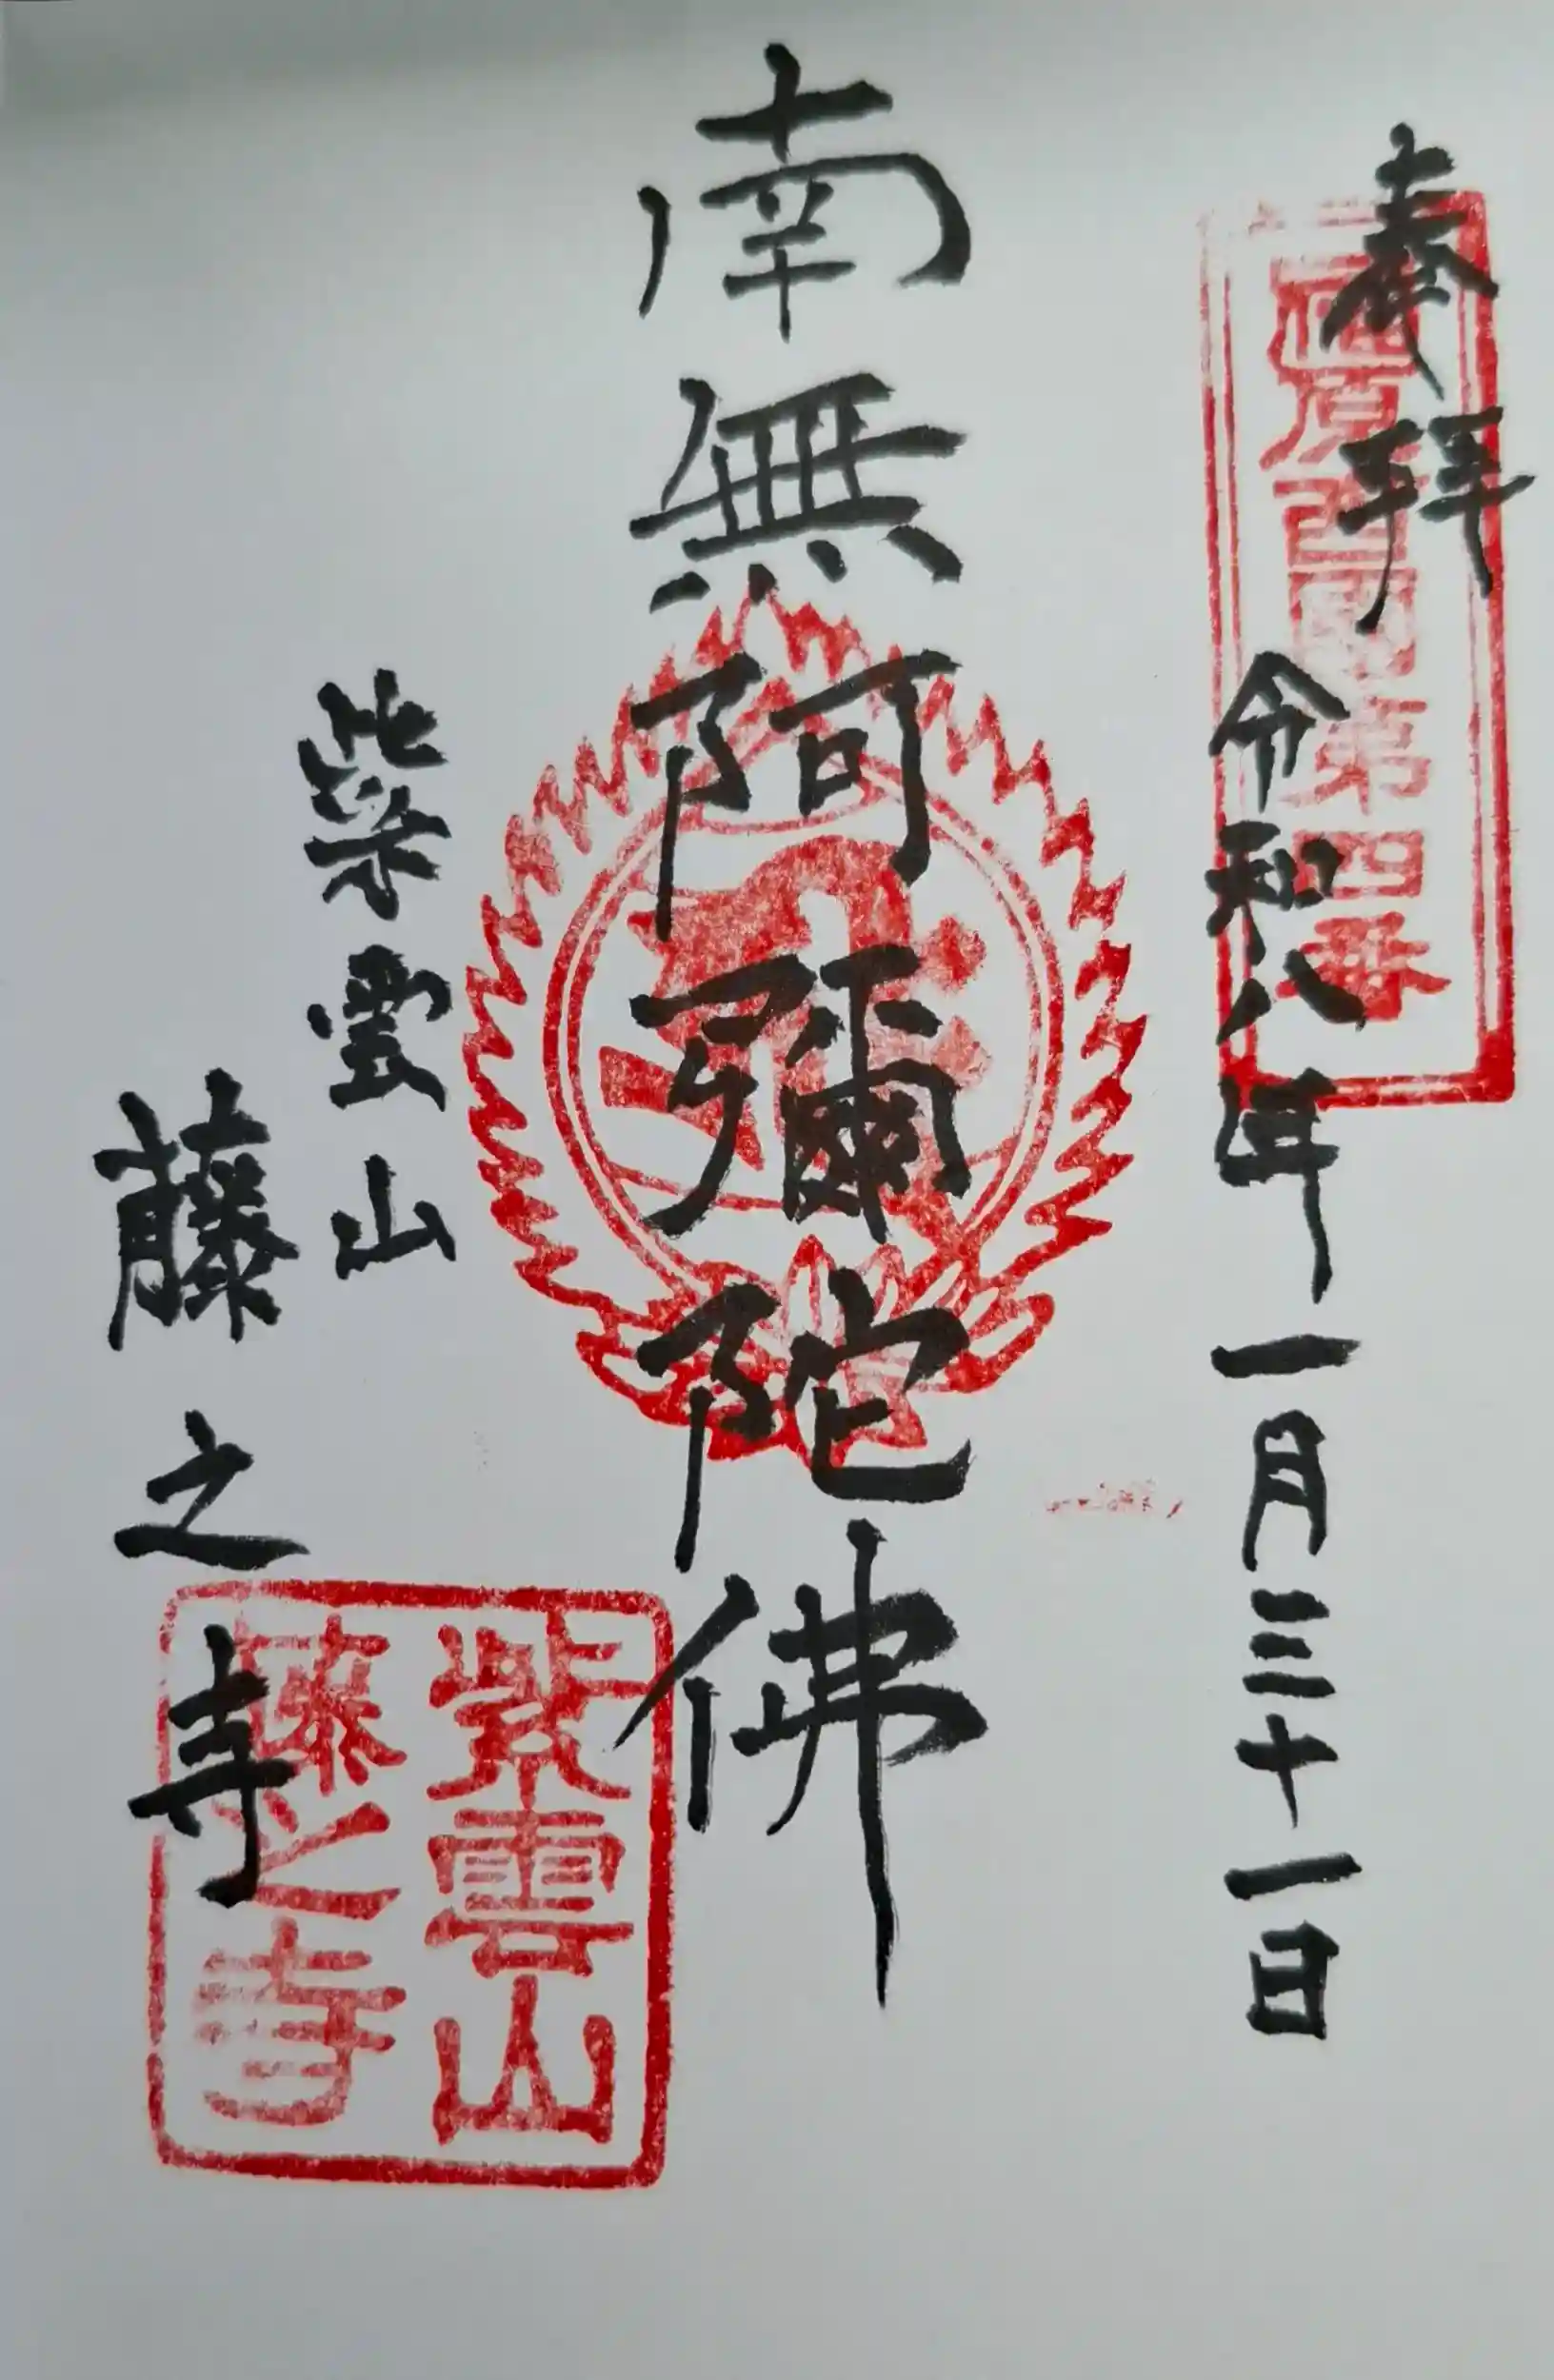 奉拝
令和八年一月三十一日
南無阿彌陀佛
紫雲山
藤之寺
紫雲山
藤之寺